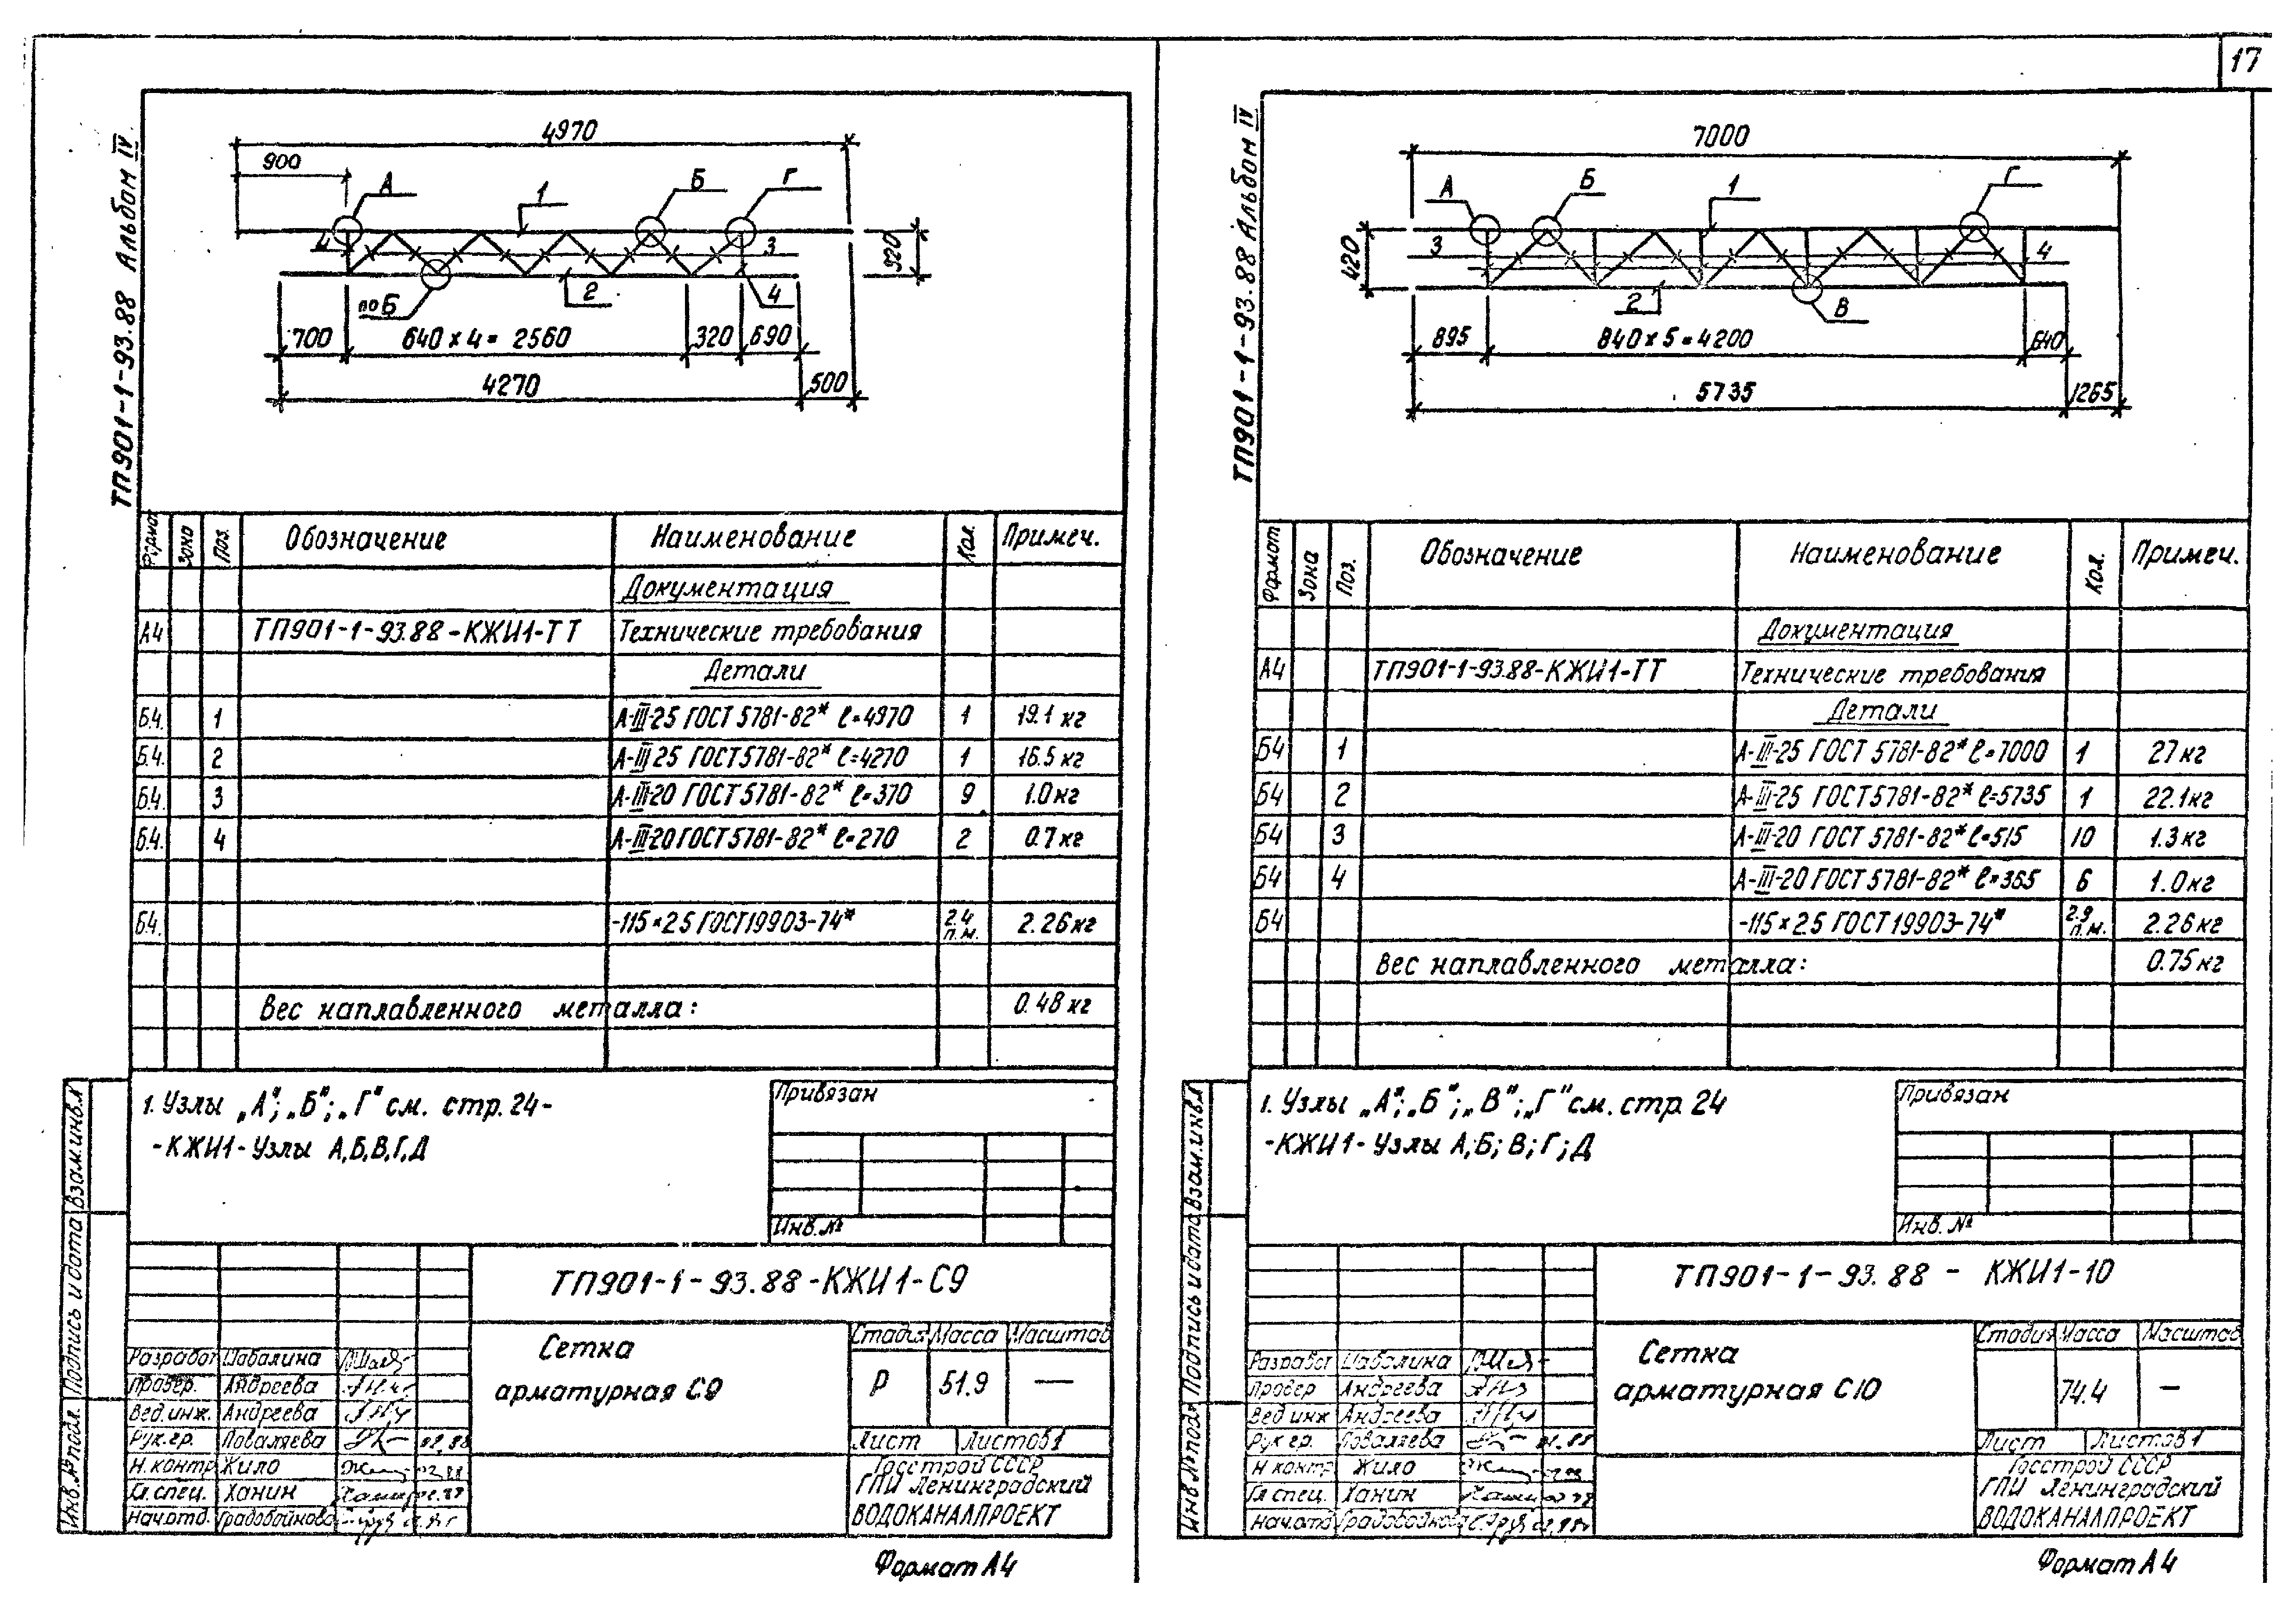 17
ТП901-1-93.88 Альбом IV
4970
900
А
1
Б
Г
4
3
320
по Б
2
4
700
640×4=2560
320
690
4270
500
Формат Зона Поз. Обозначение Наименование Кол. Примеч.
Документация
А4 ТП901-1-93.88-КЖИ1-ТТ Технические требования
Детали
Б4. 1 А-III-25 ГОСТ 5781-82* ℓ=4970 1 19.1 кг
Б.4. 2 А-III 25 ГОСТ 5781-82* ℓ=4270 1 16.5 кг
Б.4. 3 А-III-20 ГОСТ 5781-82* ℓ=370 9 1.0 кг
Б.4. 4 А-III-20 ГОСТ 5781-82* ℓ=270 2 0.7 кг
Б.4. -115×25 ГОСТ 19903-74* 2.4 п.м. 2.26 кг
Вес наплавленного металла: 0.48 кг
1. Узлы „А"; „Б"; „Г" см. стр. 24-
-КЖИ1- Узлы А,Б,В,Г,Д
Привязан
Инв. №
Взам.инв.№
Подпись и дата
Инв.№ подл.
ТП901-1-93.88-КЖИ1-С9
Сетка
арматурная С9
Стадия Масса Масштаб
Р 51.9 —
Лист Листов 1
Госстрой СССР
ГПИ Ленинградский
ВОДОКАНАЛПРОЕКТ
Разработ Шабалина
Провер. Андреева
Вед.инж. Андреева
Рук.гр. Поваляева 02.88
Н.контр Жило 02.88
Гл.спец. Ханин
Нач.отд. Градобойнова
Формат А4
ТП901-1-93.88 Альбом IV
7000
А
Б
1
Г
420
3
4
2
В
895
840×5=4200
640
5735
1265
Формат Зона Поз. Обозначение Наименование Кол. Примеч.
Документация
А4 ТП901-1-93.88-КЖИ1-ТТ Технические требования
Детали
Б4 1 А-III-25 ГОСТ 5781-82* ℓ=7000 1 27 кг
Б4 2 А-III-25 ГОСТ 5781-82* ℓ=5735 1 22.1 кг
Б4 3 А-III-20 ГОСТ 5781-82* ℓ=515 10 1.3 кг
Б4 4 А-III-20 ГОСТ 5781-82* ℓ=365 6 1.0 кг
Б4 -115×25 ГОСТ 19903-74* 2.9 п.м. 2.26 кг
Вес наплавленного металла: 0.75 кг
1. Узлы „А"; „Б"; „В"; „Г" см. стр. 24
-КЖИ1- Узлы А; Б; В; Г; Д
Привязан
Инв. №
Взам.инв.№
Подпись и дата
Инв.№ подл.
ТП901-1-93.88 - КЖИ1-10
Сетка
арматурная С10
Стадия Масса Масштаб
74.4 —
Лист Листов 1
Госстрой СССР
ГПИ Ленинградский
ВОДОКАНАЛПРОЕКТ
Разработ Шабалина
Провер Андреева
Вед инж Андреева
Рук гр. Поваляева
Н контр Жило
Гл спец. Ханин
Нач.отд Градобойнова
Формат А4